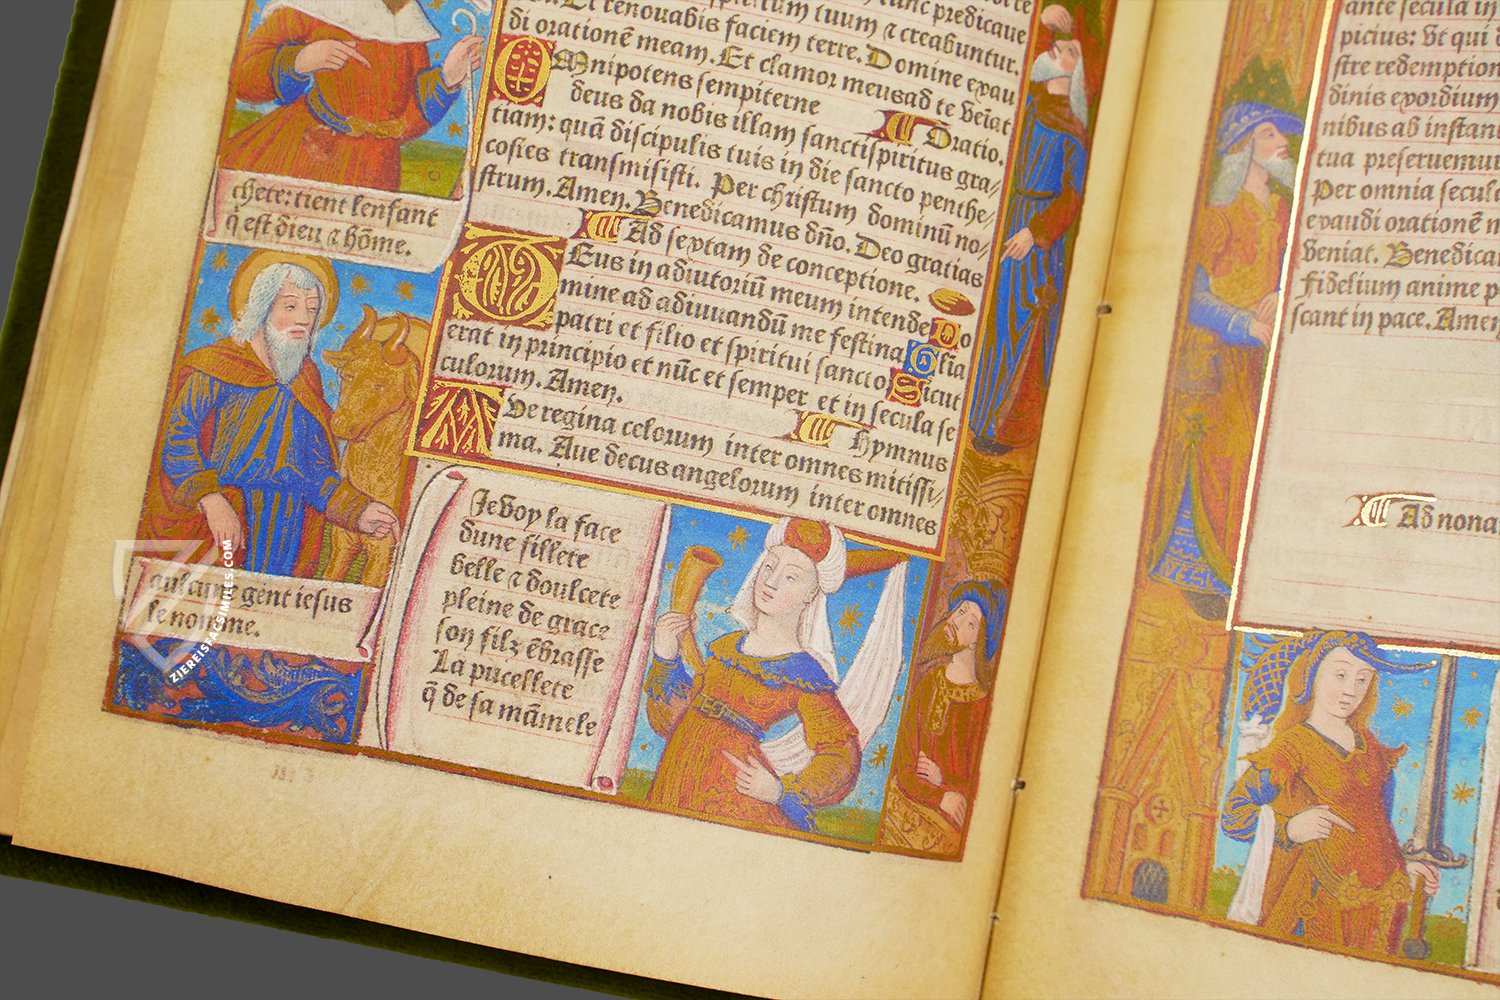 Et renovabis faciem terre. Domine exau
di orationē meam. Et clamor meus ad te veīat
Oratio.
Omnipotens sempiterne
deus da nobis illam sanctispiritus gra/
tiam: quā discipulis tuis in die sancto penthe/
costes transmisisti. Per christum dominū no/
strum. Amen. Benedicamus dño. Deo gratias
Ad sextam de conceptione.
DEus in adiutoriū meum intende Do
mine ad adiuuandū me festina Glia
patri et filio et spiritui sancto Sicut
erat in principio et nūc et semper et in secula se
culorum. Amen.
Hymnus
AVe regina celorum inter omnes mitissi/
ma. Aue decus angelorum inter omnes
chete: tient lenfant
q̄ est dieu ⁊ hōme.
aulcune gent iesus
le nomme.
Je voy la face
dune fillete
belle ⁊ doulcete
pleine de grace
son filz ēbrasse
La pucellete
q̄ de sa māmele
ante secula in
picius: Ut qui
stre redemption
dinis exordium
nibus ab instan
tua preseruemur
Per omnia secul
exaudi orationē m
veniat. Benedica
fidelium anime p
scant in pace. Amen
Ad nona
ZIEREIS FACSIMILES.COM